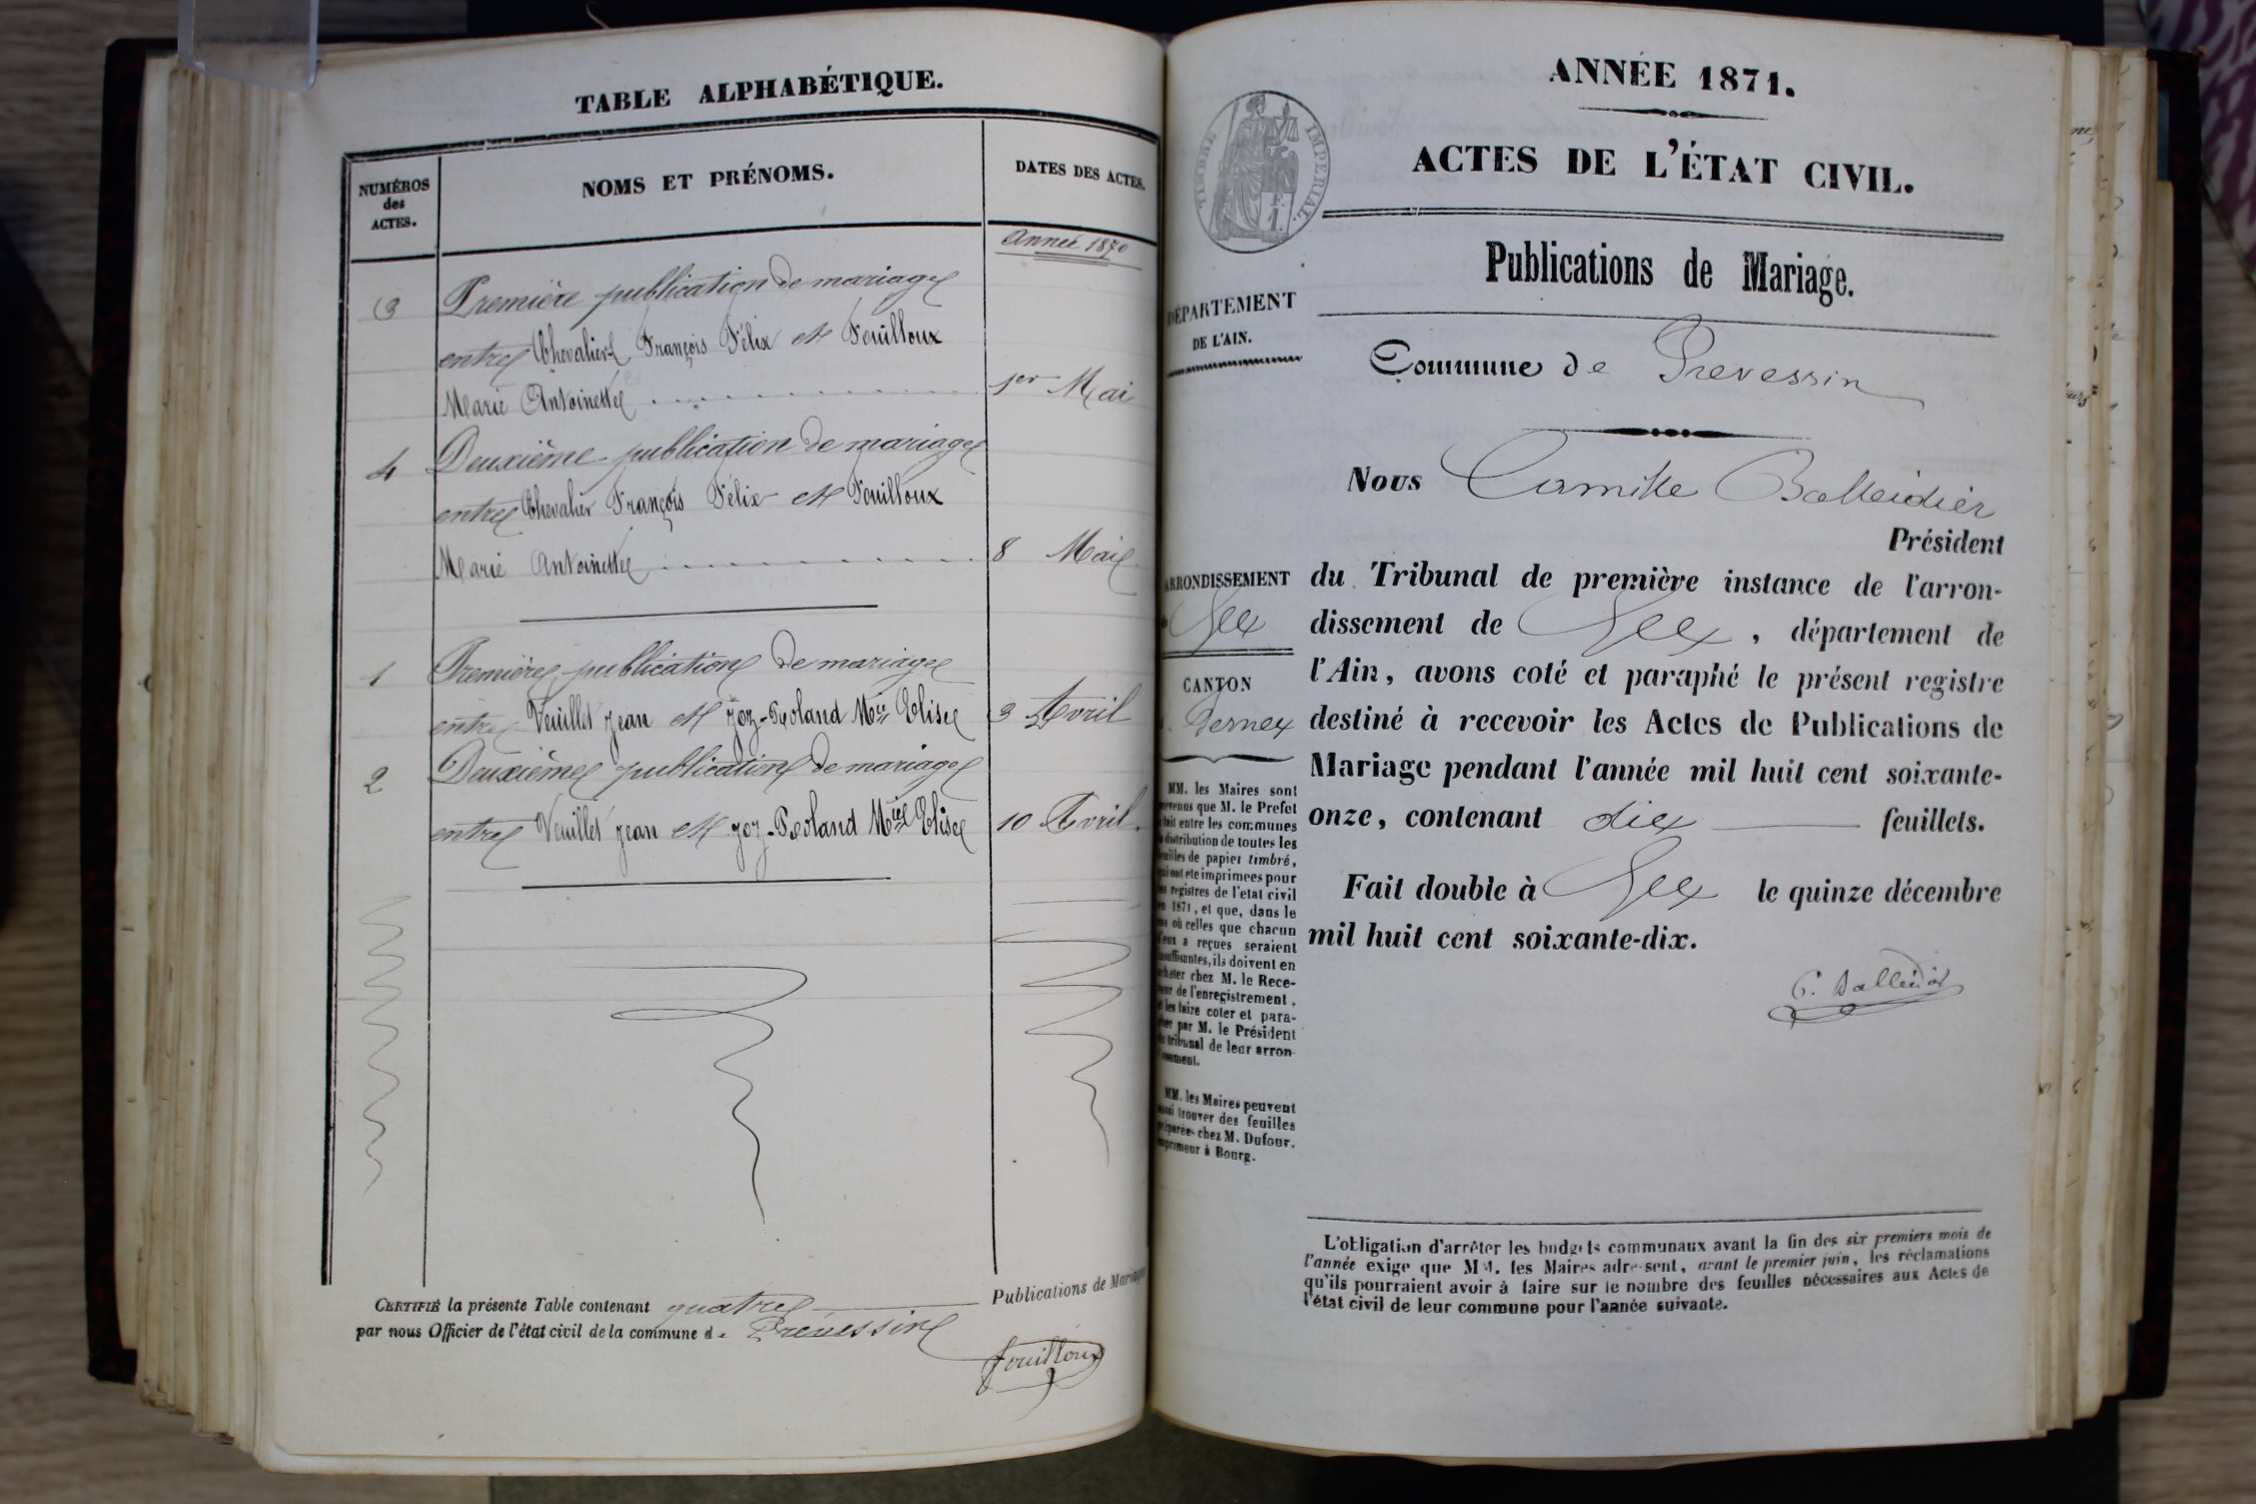 TABLE ALPHABÉTIQUE.
NUMÉROS
des
ACTES.
NOMS ET PRÉNOMS.
DATES DES ACTES.
Année 1870
3 Première publication de mariage
entre Chevalier François Félix et Fouilloux
Marie Antoinette 1er Mai
4 Deuxième publication de mariage
entre Chevalier François Félix et Fouilloux
Marie Antoinette 8 Mai
1 Première publication de mariage
entre Veuillet Jean et Joz-Roland Mie Elise 3 Avril
2 Deuxième publication de mariage
entre Veuillet Jean et Joz-Roland Mie Elise 10 Avril.
CERTIFIÉ la présente Table contenant quatre
par nous Officier de l'état civil de la commune de Prévessin
Publications de Mariage
fouilloux
ANNÉE 1871.
TIMBRE IMPÉRIAL.
1 F.
ACTES DE L'ÉTAT CIVIL.
Publications de Mariage.
DÉPARTEMENT
DE L'AIN.
Commune de Prevessin
Nous Camille Balleidier
Président
du Tribunal de première instance de l'arron-
dissement de Gex, département de
l'Ain, avons coté et paraphé le présent registre
destiné à recevoir les Actes de Publications de
Mariage pendant l'année mil huit cent soixante-
onze, contenant dix feuillets.
Fait double à Gex le quinze décembre
mil huit cent soixante-dix.
C. Balleidier
ARRONDISSEMENT
Gex
CANTON
Ferney
MM. les Maires sont
prévenus que M. le Préfet
fait entre les communes
la distribution de toutes les
feuilles de papier timbré,
qui ont été imprimées pour
les registres de l'état civil
en 1871, et que, dans le
cas où celles que chacun
d'eux a reçues seraient
insuffisantes, ils doivent en
acheter chez M. le Rece-
veur de l'enregistrement,
et les faire coter et para-
pher par M. le Président
du tribunal de leur arron-
dissement.
MM. les Maires peuvent
aussi trouver des feuilles
préparées chez M. Dufour,
imprimeur à Bourg.
L'obligation d'arrêter les budgets communaux avant la fin des six premiers mois de
l'année exige que MM. les Maires adressent, avant le premier juin, les réclamations
qu'ils pourraient avoir à faire sur le nombre des feuilles nécessaires aux Actes de
l'état civil de leur commune pour l'année suivante.